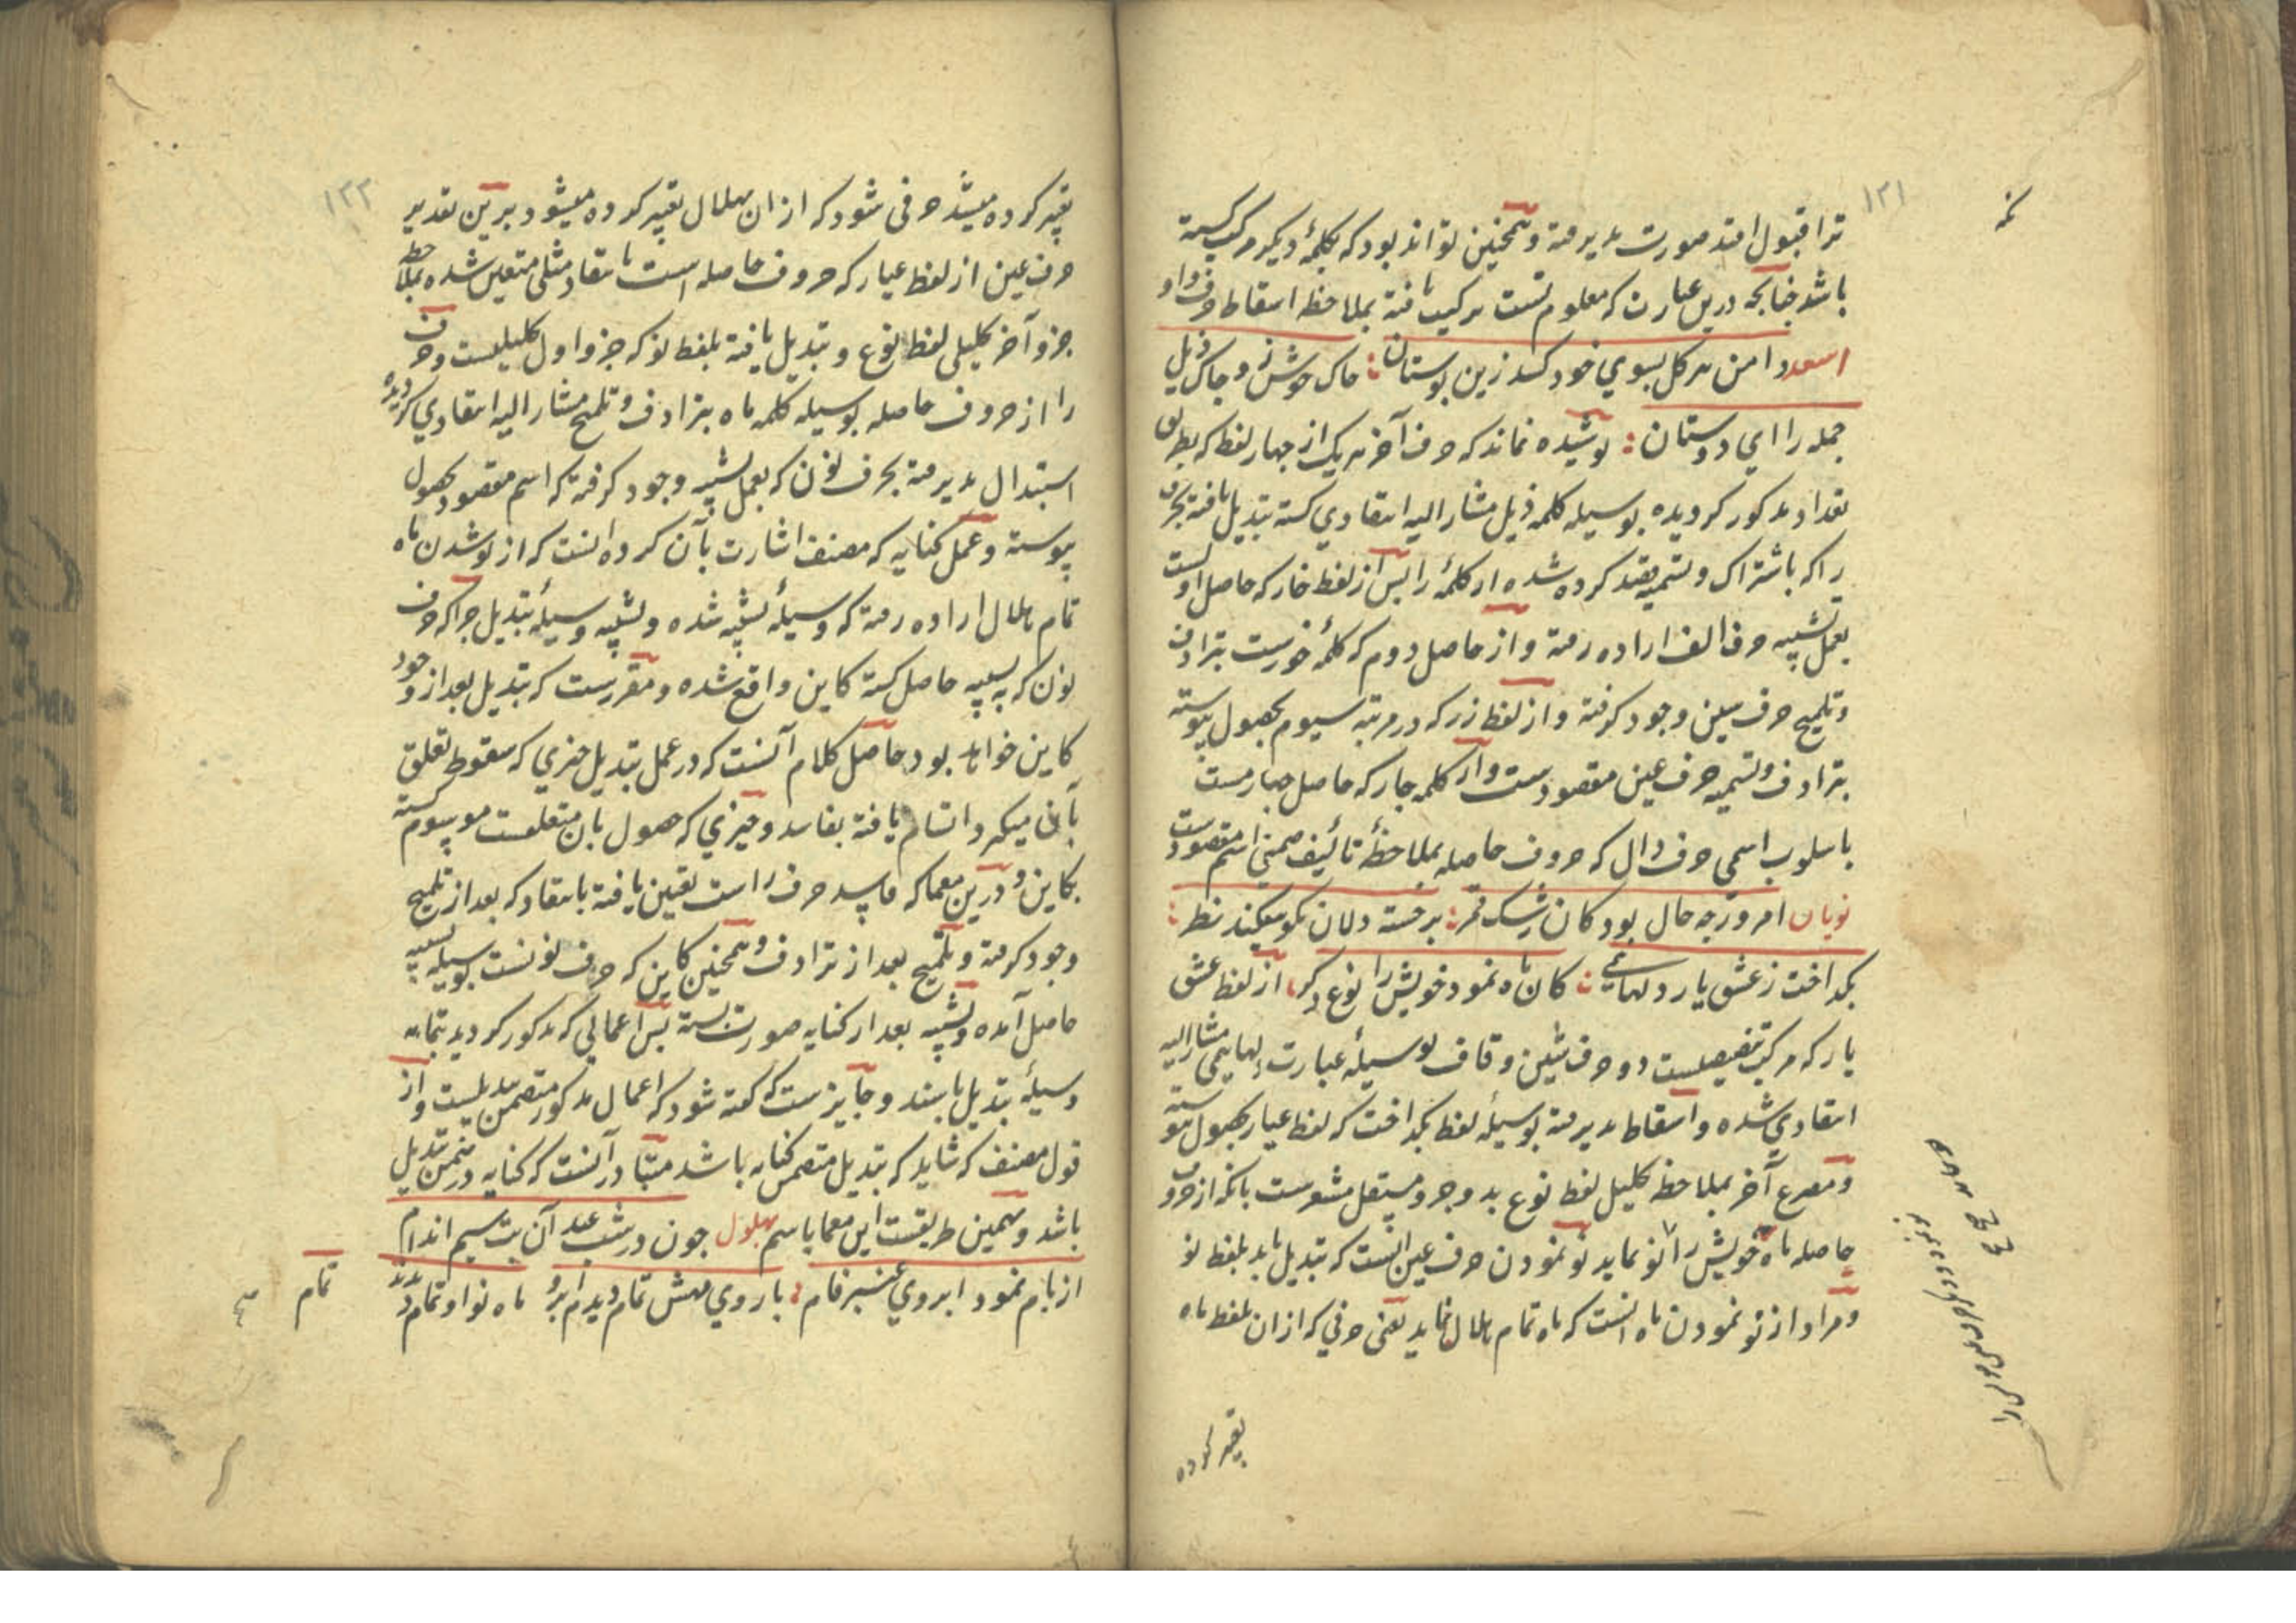 ۱۲۱
ترا قبول افتد صورت پذیرفته و همچنین تواند بود که بکلمهٔ دیگر مرکب گشته
باشد چنانچه درین عبارت که معلوم تست ترکیب یافته بملاحظه اسقاط حرف واو
اسعد دامن هر گل بسوی خود کشد زین بوستان خاک خوش زر و جاک ذیل
جمله را ای دوستان پوشیده نماند که حرف آخر هر یک از چهار لفظ که بطریق
تعداد مذکور گردیده بوسیله کلمه ذیل مشار الیه انتقادی گشته تبدیل یافته بحرف
را که باشتراک و تسمیه قصد کرده شده از کلمهٔ را پس از لفظ خار که حاصل اولست
بعمل تشبیه حرف الف اراده رفته و از حاصل دوم که کلمهٔ خورست بترادف
و تلمیح حرف سین وجود گرفته و از لفظ زر که در مرتبه سیوم بحصول پیوسته
بترادف و تسمیه حرف عین مقصودست و از کلمه جار که حاصل چهارمست
باسلوب اسمی حرف دال که حروف حاصله بملاحظهٔ تألیف ضمنی اسم مقصودست
نوبان امروز چه حال بود کان رشک قمر بر خسته دلان نکو میکند نظر
بگداخت ز عشق یار دلها کان ماه نمود خویش را نوع دگر از لفظ عشق
یار که مرکب تنصیصیست دو حرف شین و قاف بوسیلهٔ عبارت دلهایی مشار الیه
انتقادی شده و اسقاط پذیرفته بوسیلهٔ لفظ بگداخت که لفظ عیار بحصول پیوسته
و مصرع آخر بملاحظه تحلیل لفظ نوع بدو جزو مستقل مشعرست بانکه از حروف
حاصله ماه خویش را نو نماید نو نمودن حرف عین انست که تبدیل یابد بلفظ نو
و مراد از نو نمودن ماه انست که ماه تمام هلال نماید یعنی حرفی که ازان بلفظ ماه
تعبیر کرده
۱۲۲
تعبیر کرده میشد حرفی شود که ازان بهلال تعبیر کرده میشود برین تقدیر
حرف عین از لفظ عیار که حروف حاصله است بانتقاد مثلی متعین شده بملاحظه
جزو آخر تحلیلی لفظ نوع و تبدیل یافته بلفظ نو که جزو اول تحلیلیست و حرف
را از حروف حاصله بوسیله کلمه ماه بترادف و تلمیح مشار الیه انتقادی گردیده
استبدال پذیرفته بحرف نون که بعمل تشبیه وجود گرفته که اسم مقصود بحصول
پیوسته و عمل کنایه که مصنف اشارت بآن کرده انست که از نو شدن ماه
تمام هلال اراده رفته که وسیلهٔ تشبیه شده و تشبیه وسیلهٔ تبدیل چرا که حرف
نون که به تشبیه حاصل گشته کاین واقع شده و مقررست که تبدیل بعد از وجود
کاین خواهد بود حاصل کلام آنست که در عمل تبدیل چیزی که سقوط تعلق
بآن میگیرد اتسام یافته بفاسد و چیزی که حصول بان متعلقست موسوم گشته
بکاین و درین معما که فاسد حرف راست تعین یافته بانتقاد که بعد از تلمیح
وجود گرفته و تلمیح بعد از ترادف و همچنین کاین که حرف نونست بوسیله تشبیه
حاصل آمده و تشبیه بعد از کنایه صورت بسته پس اعمالی که مذکور گردید بتمامه
وسیلهٔ تبدیل باشند و جایزست که گفته شود که اعمال مذکور متضمن تبدیلست و از
قول مصنف که شاید که تبدیل متضمن کنایه باشد متبادر آنست که کنایه در ضمن تبدیل
باشد و بهمین طریقست این معما باسم بهلول چون در شب عید آن بت سیم اندام
از بام نمود ابروی عنبر فام با روی مهش تمام دیدم ابرو ماه نو او تمام
تمام